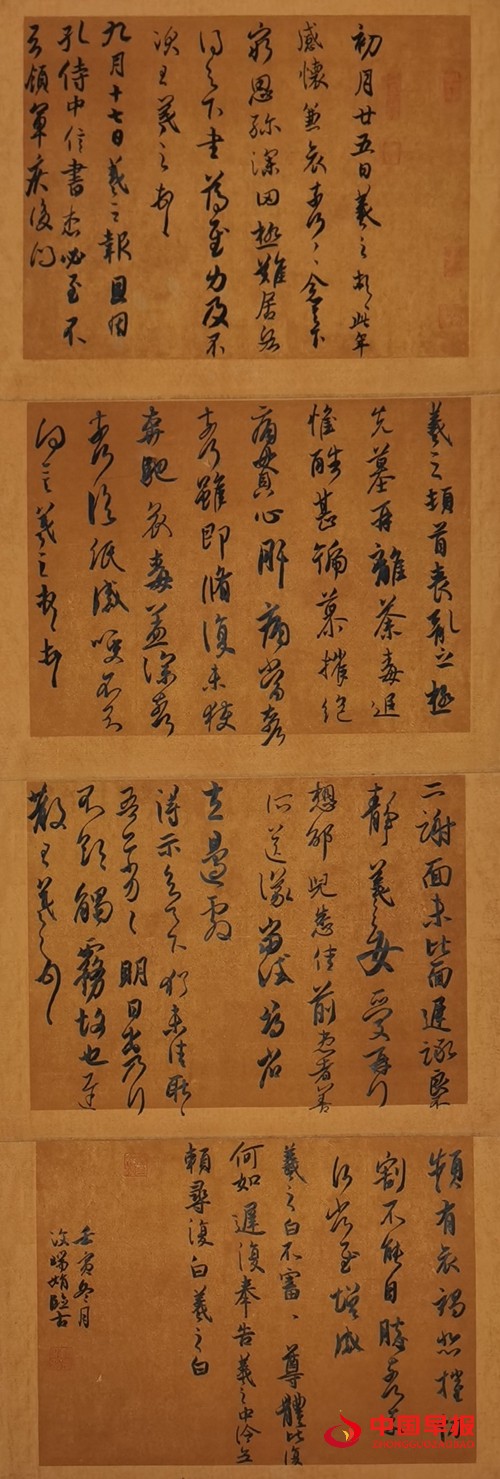 初月廿五日羲之頓首此年
感懷兼哀奈何〻念足下
窮思弥深因極難居
得足下書為慰力及不
次王羲之頓首
九月十七日羲之報且因
孔侍中信書想必至不
知領軍疾後問
羲之頓首喪亂之極
先墓再離荼毒追
惟酷甚號慕摧絕
痛貫心肝痛當奈何
奈何雖即脩復未獲
奔馳哀毒益深奈何
奈何臨紙感哽不知
何言羲之頓首頓首
二謝面未比面遲詠良
靜羲之女愛再拜
想邵兒悉佳前患者善
所送議當試尋省
左邊劇
得示知足下猶未佳耿〻
吾亦劣〻明日出乃行
不欲觸霧故也遲
散王羲之頓首
頻有哀禍悲摧切
割不能自勝奈何奈何
省慰增感
羲之白不審尊體比復
何如遲復奉告羲之中冷無
賴尋復白羲之白
壬寅冬月
臨古
中国早报
CHINADAILYNEWS